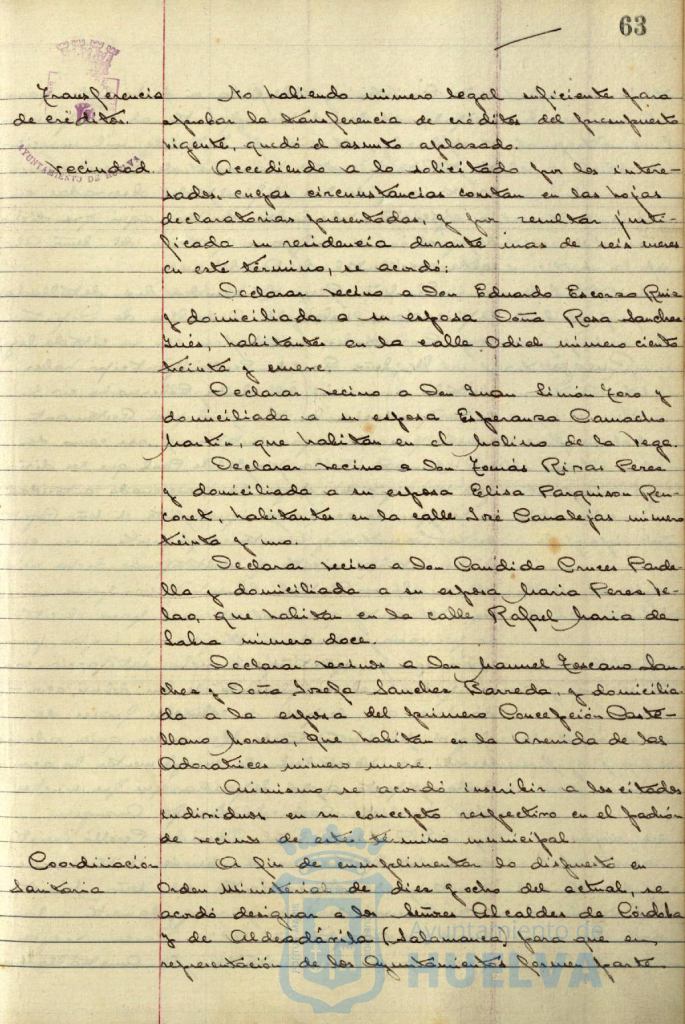 63
Transferencia
de créditos.
No habiendo número legal suficiente para
aprobar la transferencia de créditos del presupuesto
vigente, quedó el asunto aplazado.
AYUNTAMIENTO DE HUELVA
Vecindad.
Accediendo a lo solicitado por los intere-
sados, cuyas circunstancias constan en las hojas
declaratorias presentadas, y por resultar justi-
ficada su residencia durante mas de seis meses
en este término, se acordó:
Declarar vecino a Don Eduardo Escorza Ruiz
y domiciliada a su esposa Doña Rosa Sanchez
Inés, habitantes en la calle Odiel número ciento
treinta y nueve.
Declarar vecino a Don Juan Simón Toro y
domiciliada a su esposa Esperanza Camacho
Martín, que habitan en el Molino de la Vega.
Declarar vecino a Don Tomás Rivas Perez
y domiciliada a su esposa Elisa Parquison Ren-
coret, habitantes en la calle José Canalejas número
treinta y uno.
Declarar vecino a Don Candido Cruces Parde-
lla y domiciliada a su esposa Maria Perez Ve-
lao, que habitan en la calle Rafael Maria de
Labra número doce.
Declarar vecinos a Don Manuel Toscano San-
chez y Doña Josefa Sanchez Barreda, y domicilia-
da a la esposa del primero Concepción Caste-
llano Moreno, que habitan en la Avenida de las
Adoratrices número nueve.
Asimismo se acordó inscribir a los citados
individuos en su concepto respectivo en el padrón
de vecinos de este término municipal
Coordinación
Sanitaria
A fin de cumplimentar lo dispuesto en
Orden Ministerial de diez y ocho del actual, se
acordó designar a los Señores Alcaldes de Córdoba
y de Aldeadávila (Salamanca) para que en
representación de los Ayuntamientos formen parte
Ayuntamiento de
HUELVA